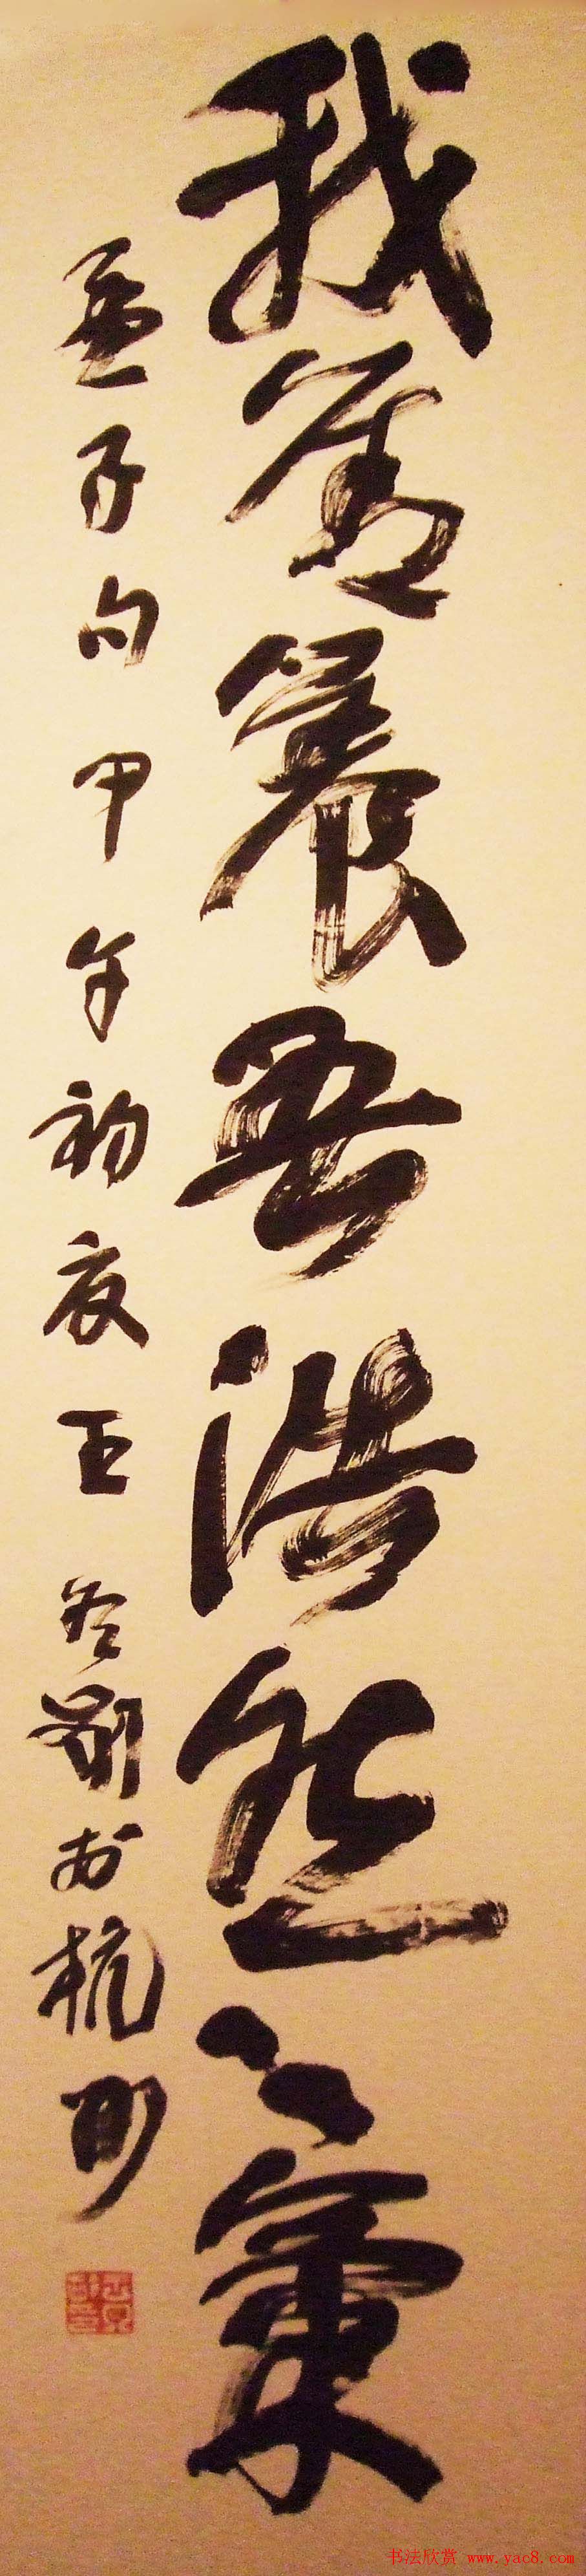 我善養吾浩然之氣
孟子句 甲午初夜王冬齡於杭州
书法欣赏 www.yac8.com